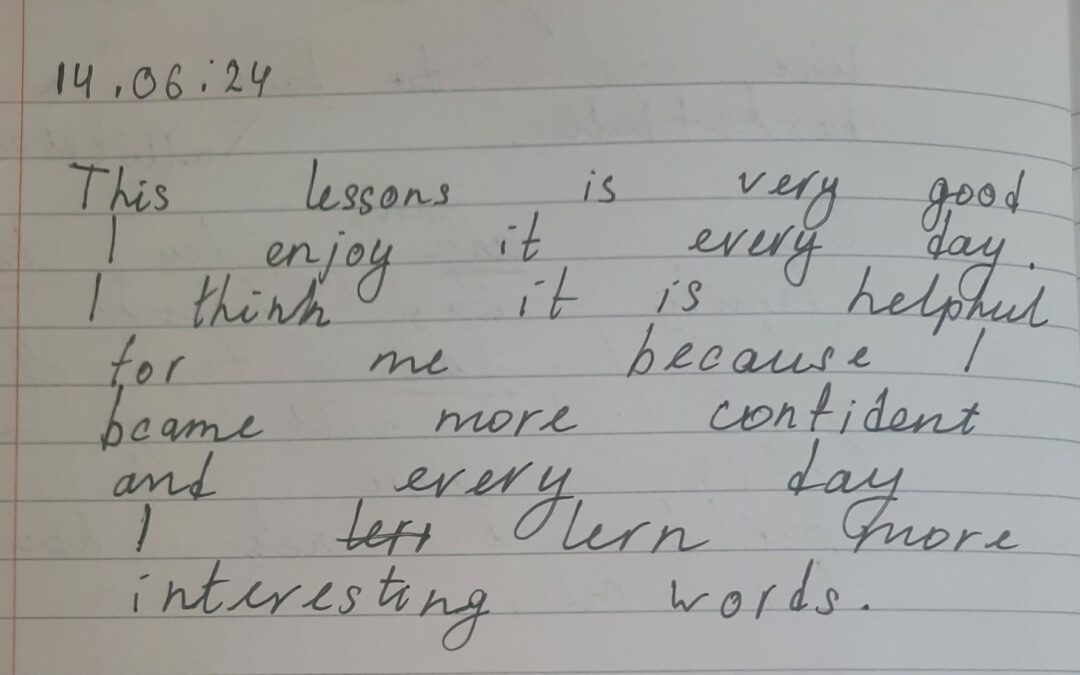 14.06:24
This lessons is very good
I enjoy it every day.
I think it is helphul
for me because I
bcame more confident
and every day
I lern lern more
interesting words.